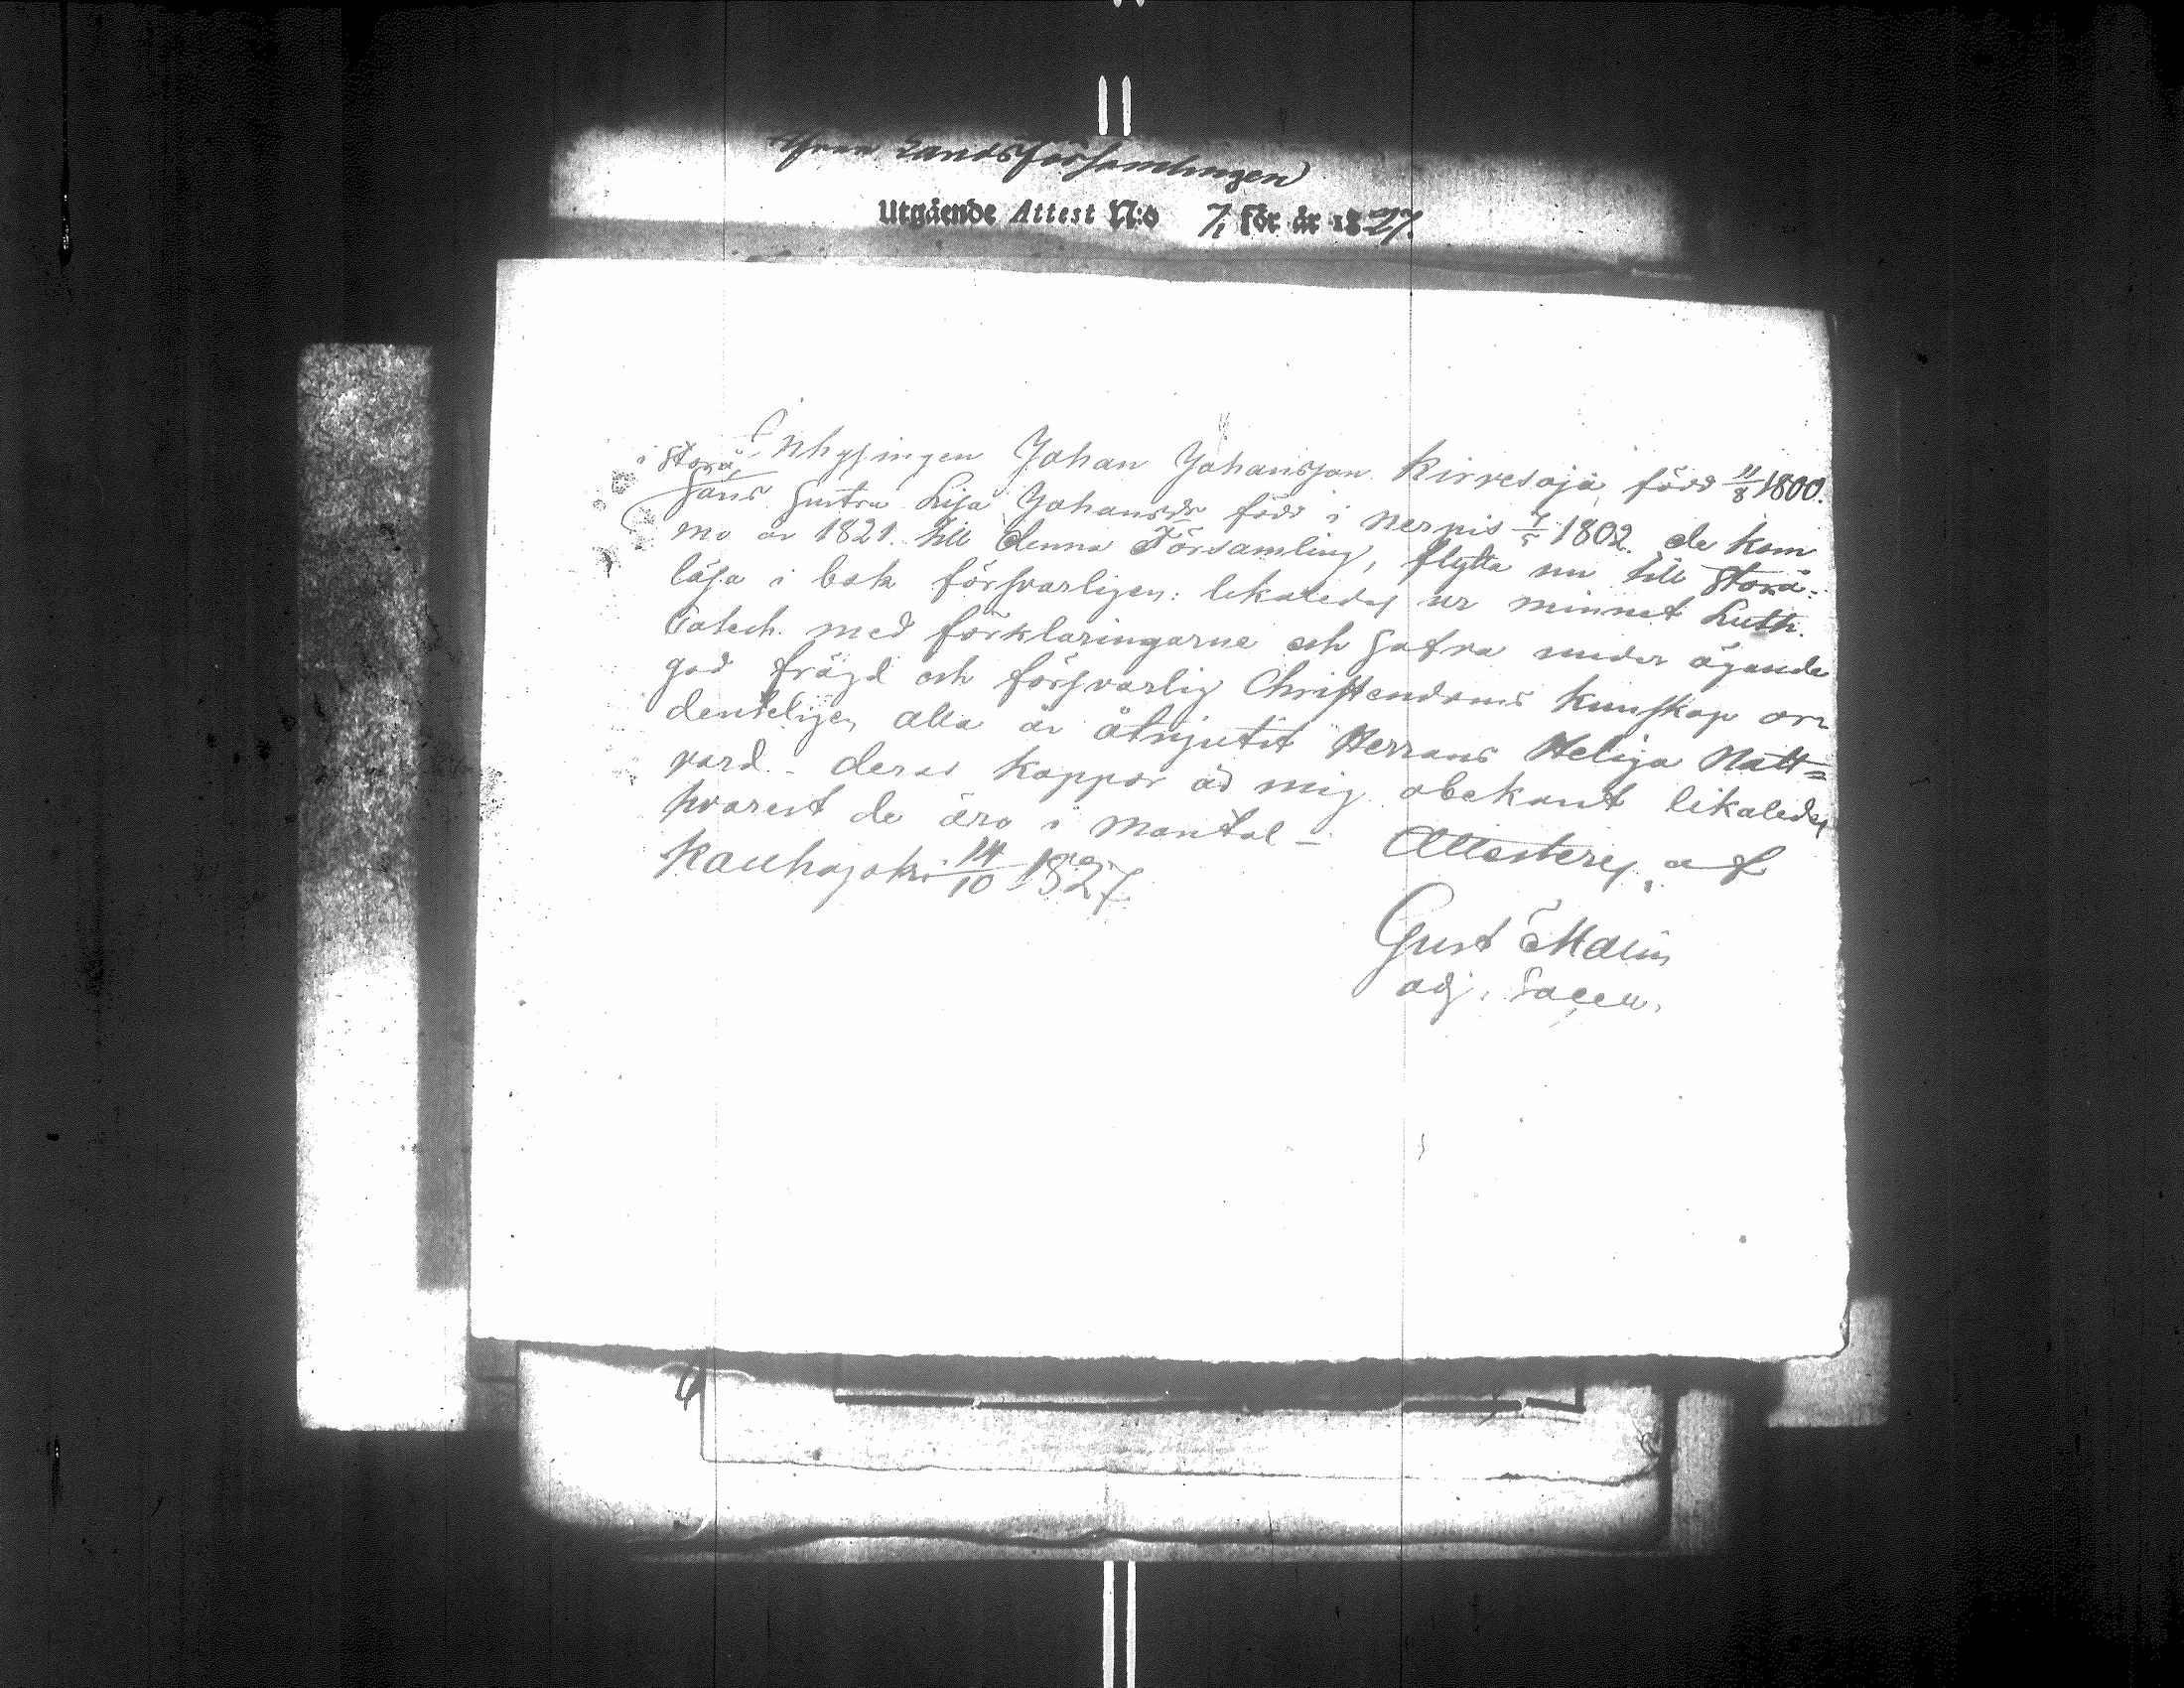 från Landsförsamlingen
Utgående Attest N:o 7, för år 1827.
Inhysingen Johan Johansson Kirvesoja, född 11/8 1800.
i Storå,
hans hustru Lisa Johansdr född i Nerpis 7/5 1802. de kom
mo år 1821. till denna Församling, flytta nu till Storå:
läsa i bok försvarligen: likaledes ur minnet Luth.
Catech. med förklaringarne och hafva under ägande
god frägd och försvarlig Christendoms kunskap or
denteligen alla år åtnjutit Herrans Heliga Natt=
vard. - deras koppor är mig obekant likaledes
hvarest de äro i mantal - Attesteres, af
Kauhajoki 14/10 1827
Gust Malin
adj. Sacell.